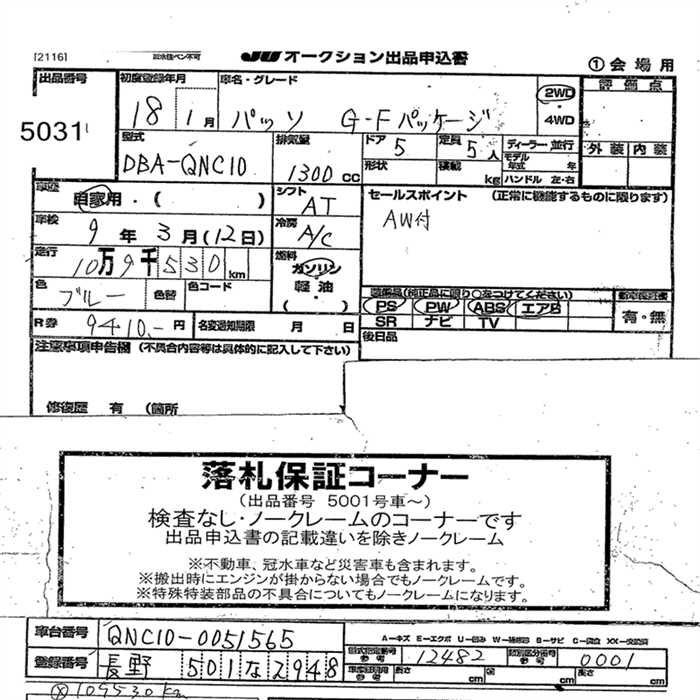 [2116]
記水性ペン不可
JU オークション出品申込書
① 会場用
出品番号 初度登録年月 車名・グレード 評価点
5031 18 1月 パッソ G-Fパッケージ 2WD
4WD
型式 排気量 ドア 定員 ディーラー 並行 外装 内装
DBA-QNC10 1300 CC 5 5人 モデル年式 年
形状 積載 kg ハンドル 左・右
車歴 自家用・( ) シフト AT セールスポイント (正常に機能するものに限ります)
車検 9年 3月(12日) 冷房 A/C AW付
走行 10万9千530km 燃料 ガソリン
軽油
( )
色 ブルー 色替 色コード
装備品(純正品に限り○をつけてください)
PS PW ABS エアB 有・無
SR ナビ TV
R券 9410.-円 名変通知期限 月 日 後日品
注意事項申告欄 (不具合内容等は具体的に記入して下さい)
修復歴 有 (箇所
落札保証コーナー
(出品番号 5001号車~)
検査なし・ノークレームのコーナーです
出品申込書の記載違いを除きノークレーム
※不動車、冠水車など災害車も含まれます。
※搬出時にエンジンが掛からない場合でもノークレームです。
※特殊特装部品の不具合についてもノークレームになります。
車台番号 QNC10-0051565 A-キズ E-エクボ U-凹み W-補修跡 B-サビ C-腐食 XX-交換済
登録番号 長野 501 な 2948 型式指定番号 12482 類別区分番号 0001
長さ cm 幅 cm 高さ cm
※109530km